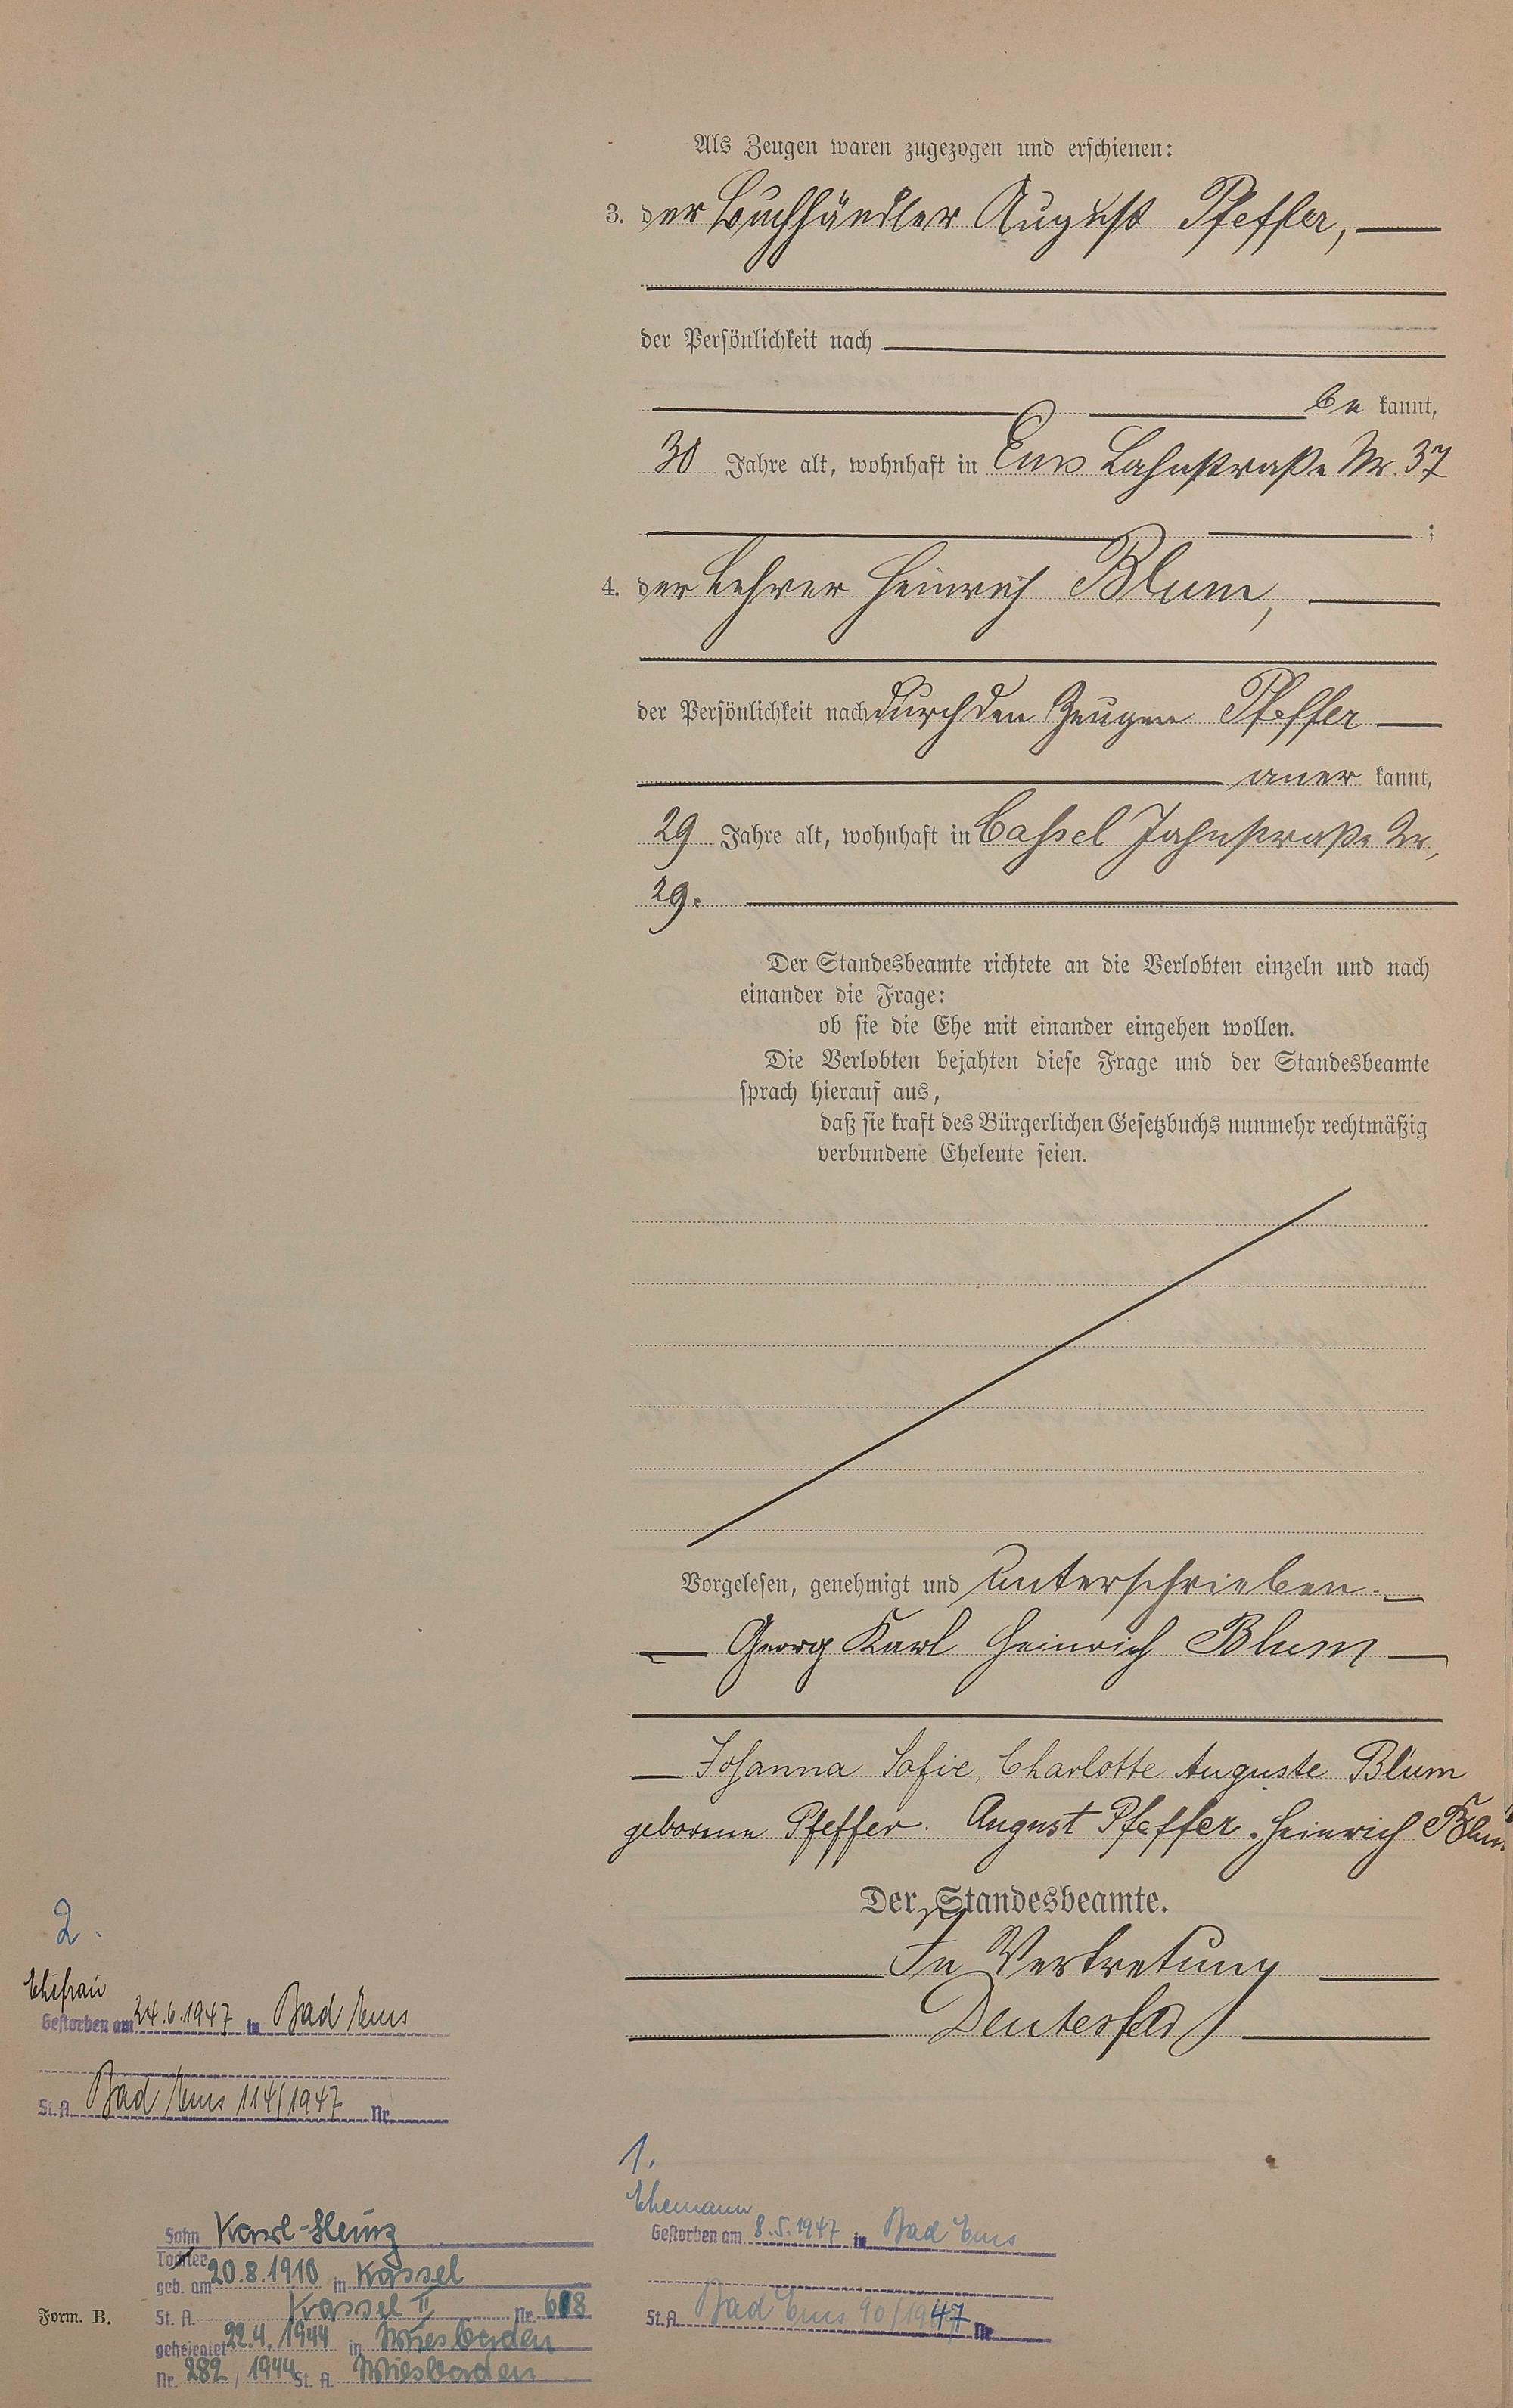 Als Zeugen waren zugezogen und erschienen:
3. der Buchhändler August Pfeffer,
der Persönlichkeit nach
be kannt,
30 Jahre alt, wohnhaft in Ems Lahnstraße Nr. 37
;
4. der Lehrer Heinrich Blum,
der Persönlichkeit nach durch den Zeugen Pfeffer
aner kannt,
29 Jahre alt, wohnhaft in Cassel Jahnstraße Nr.
29.
Der Standesbeamte richtete an die Verlobten einzeln und nach
einander die Frage:
ob sie die Ehe mit einander eingehen wollen.
Die Verlobten bejahten diese Frage und der Standesbeamte
sprach hierauf aus,
daß sie kraft des Bürgerlichen Gesetzbuchs nunmehr rechtmäßig
verbundene Eheleute seien.
Vorgelesen, genehmigt und unterschrieben.
Georg Karl Heinrich Blum
Johanna Sofie, Charlotte Auguste Blum
geborene Pfeffer. August Pfeffer. Heinrich Blum
Der Standesbeamte.
In Vertretung
2.
Ehefrau
Gestorben am 24.6.1947 in Bad Ems
St. A. Bad Ems 114/1947 Nr.
1.
Ehemann
Gestorben am 8.5.1947 in Bad Ems
St. A. Bad Ems 90/1947 Nr.
Sohn Karl-Heinz
Tochter
geb. am 20.8.1910 in Kassel
St. A. Kassel II Nr. 618
geheiratet 22.4.1944 in Wiesbaden
Nr. 282/1944 St. A. Wiesbaden
Form. B.